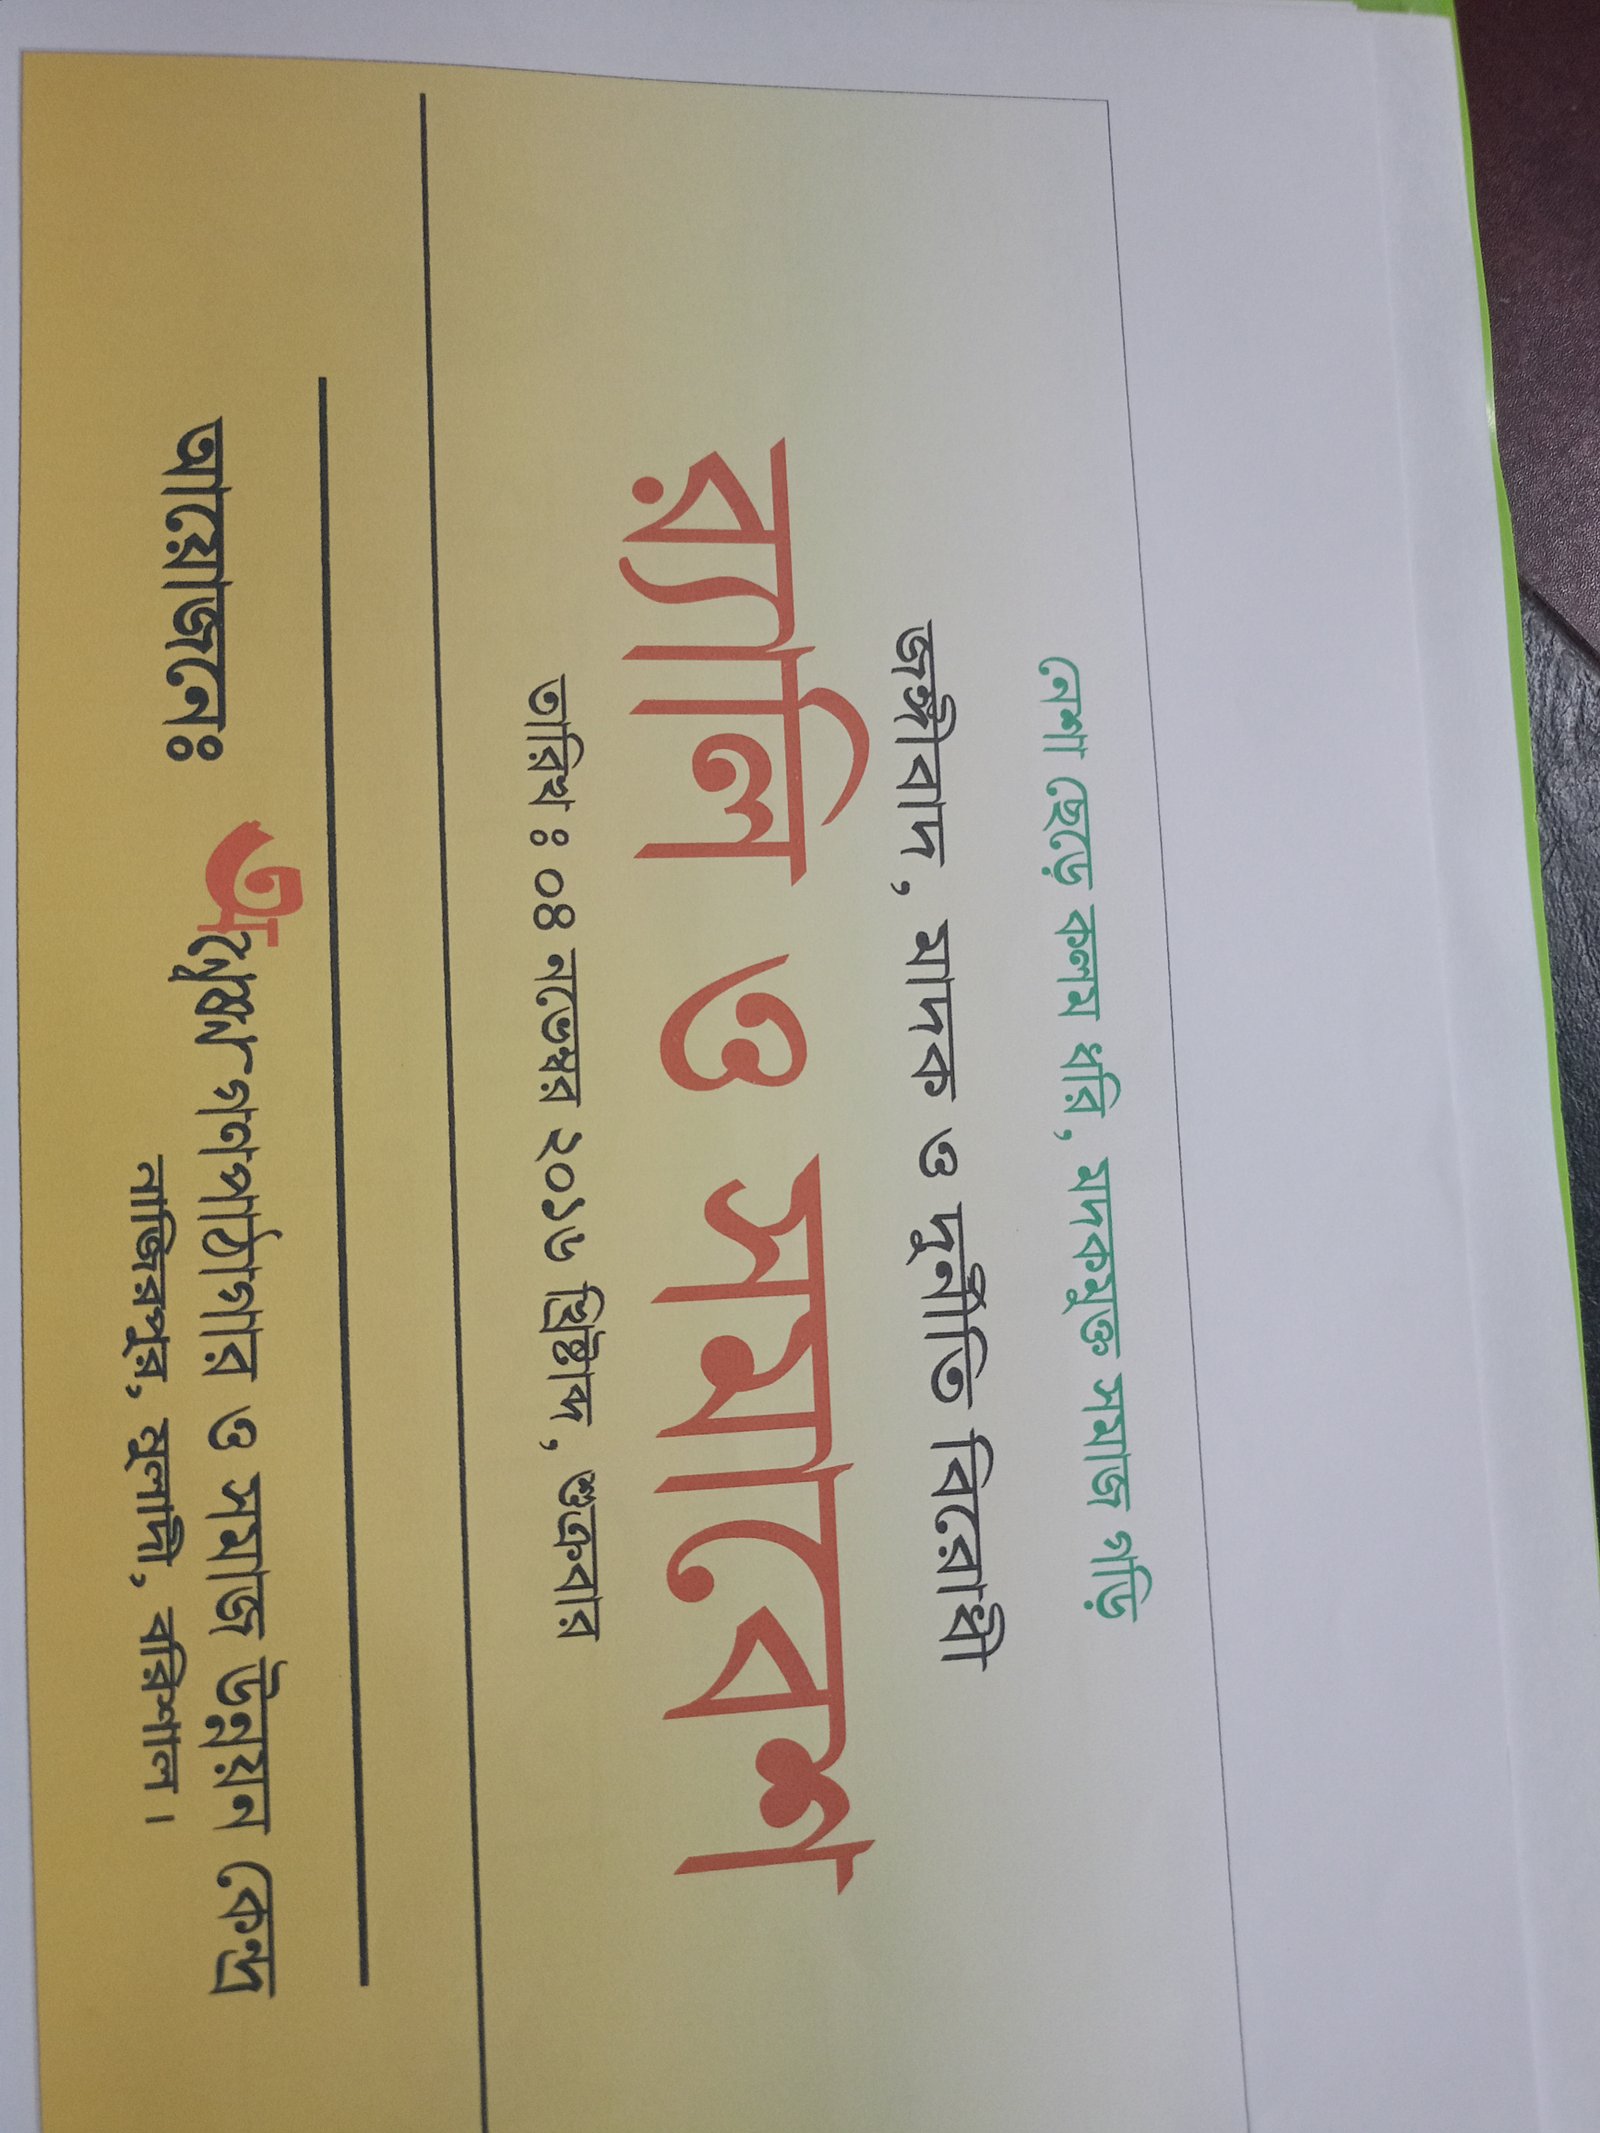 নেশা ছেড়ে কলম ধরি, মদকমুক্ত সমাজ গড়ি
জঙ্গীবাদ, মাদক ও দুর্নীতি বিরোধী
র‍্যালি ও সমাবেশ
তারিখ ঃ ০৪ নভেম্বর ২০১৬ খ্রিষ্টাব্দ, শুক্রবার
আয়োজনেঃ গণপাঠাগার ও সমাজ উন্নয়ন কেন্দ্র
নাজিরপুর, মুলাদী, বরিশাল।